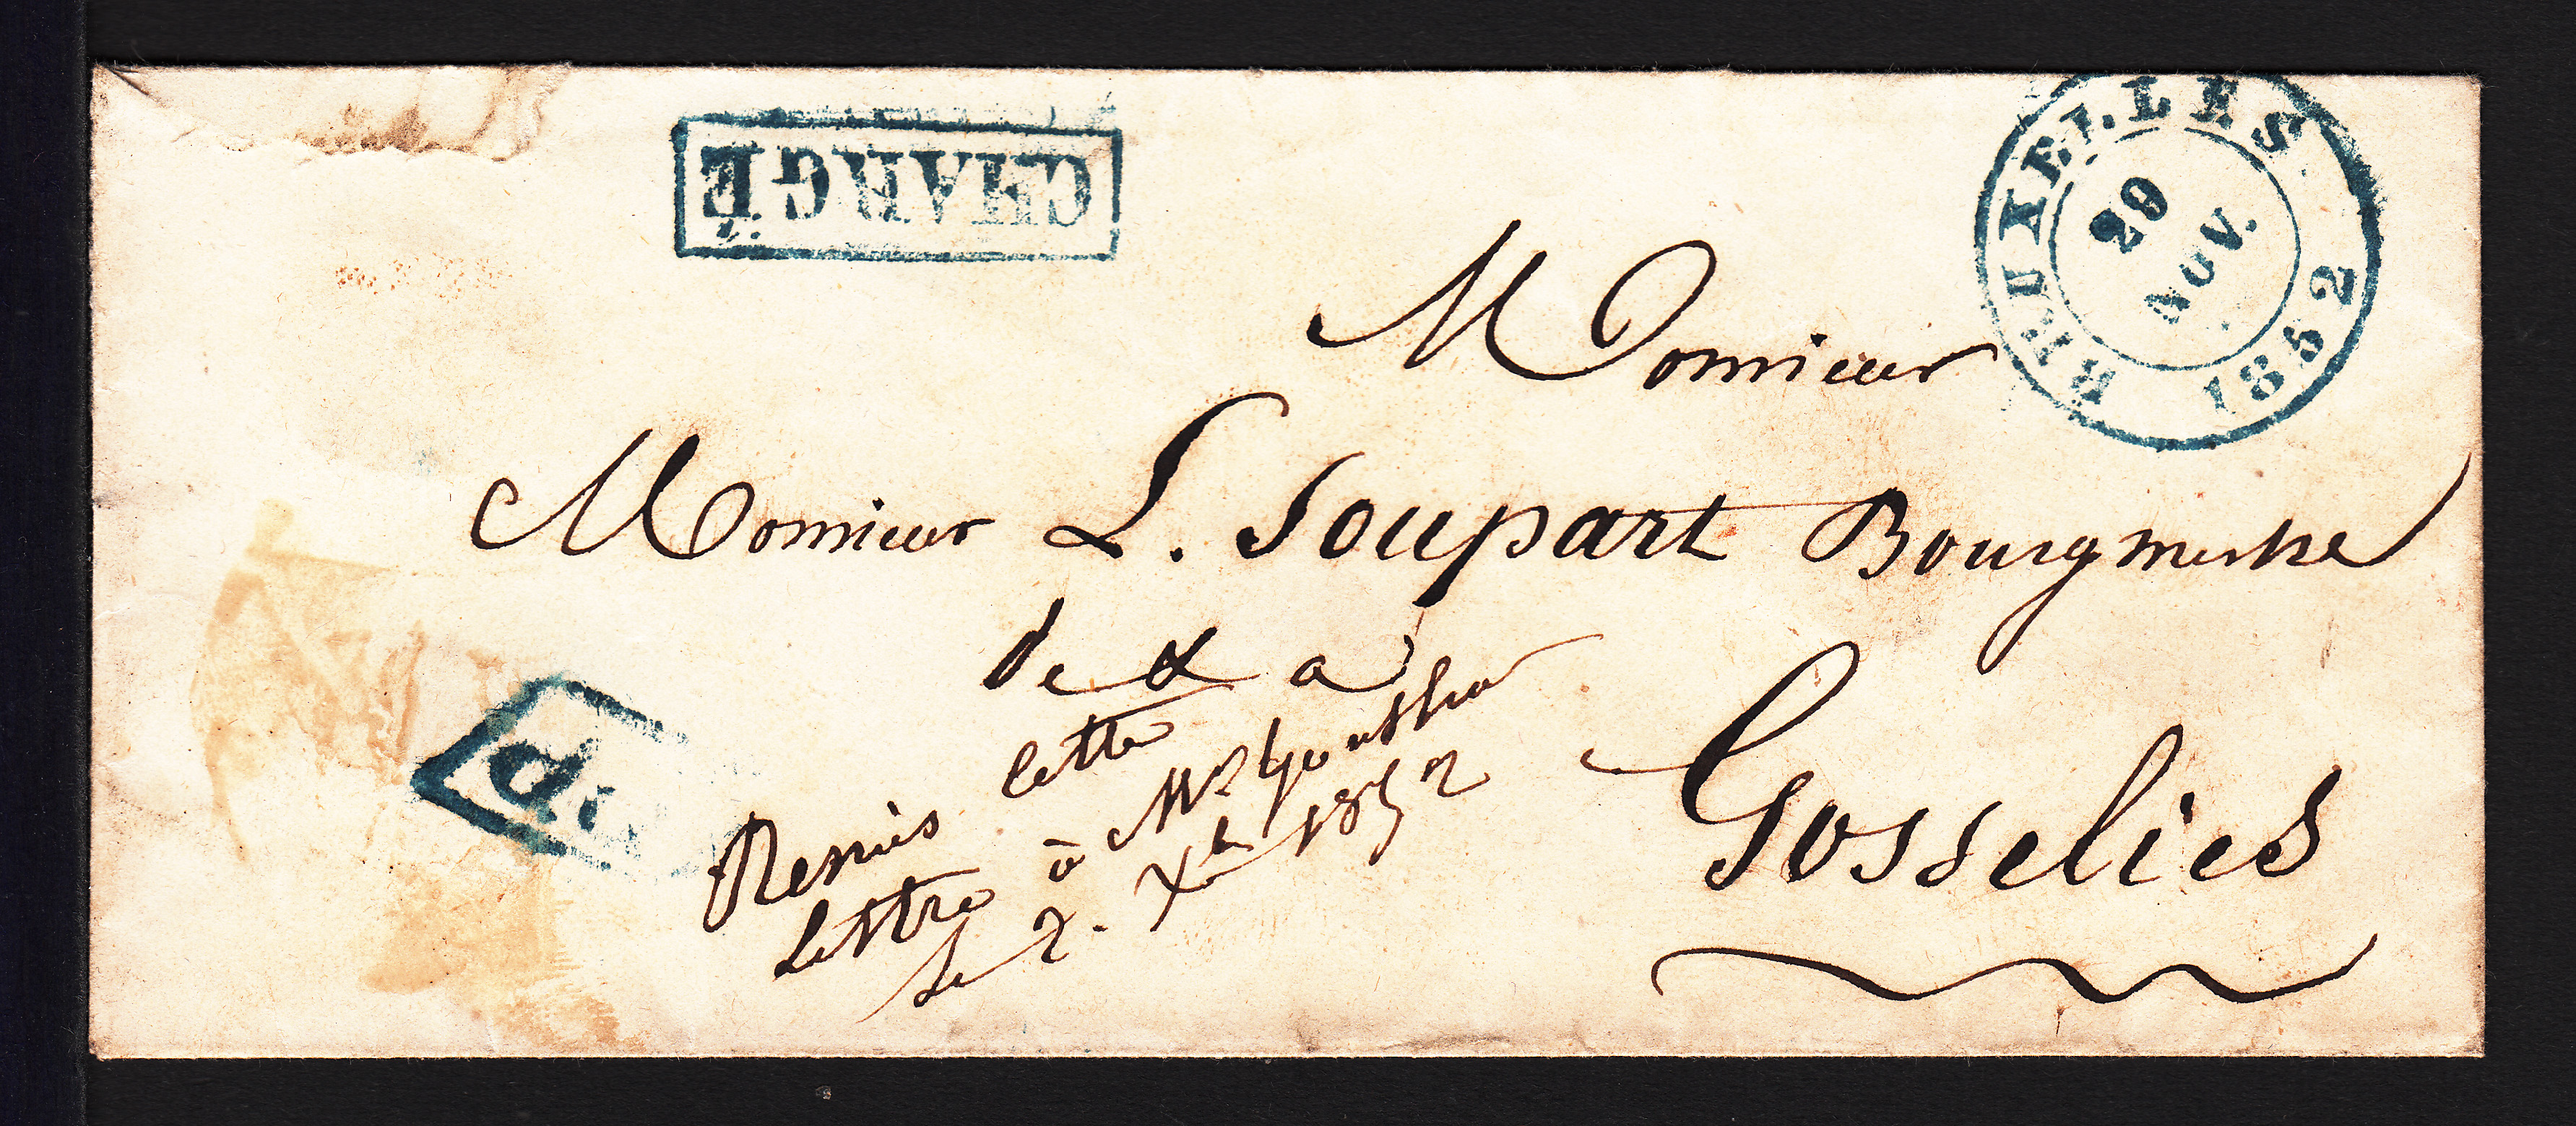 CHARGÉ
BRUXELLES
29
NOV.
1852
Monsieur
Monsieur L. Soupart Bourgmestre
de & à
Gosselies
P.P.
cette
Remis
Lettre à Mr
le 2. Xbre 1852